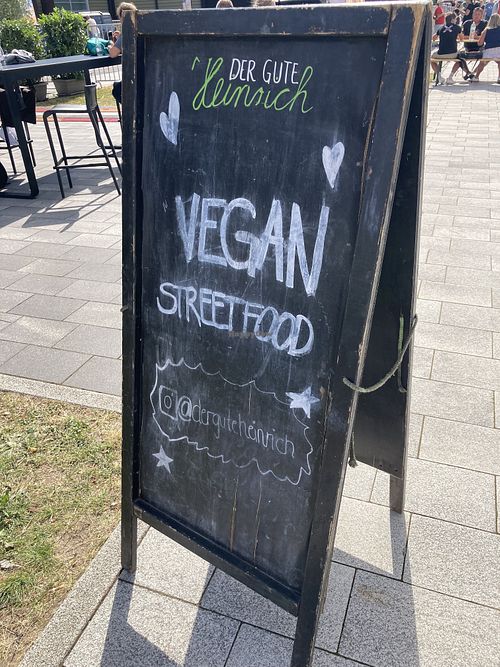 DER GUTE
Heinrich
VEGAN
STREETFOOD
@derguteheinrich